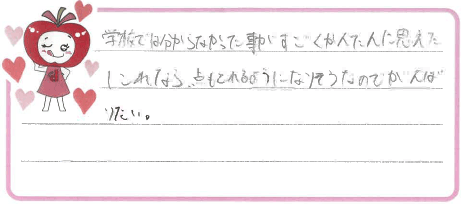 学校では分からなかった事がすごくかんたんに思えた
しこれなら、点もとれるようになりそうなのでがんば
りたい。